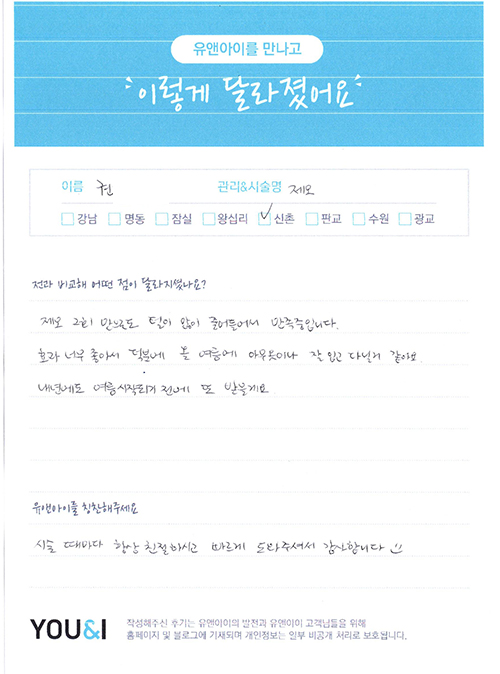 유앤아이를 만나고
이렇게 달라졌어요
이름 권 관리&시술명 제모
강남 명동 잠실 왕십리 신촌 판교 수원 광교
전과 비교해 어떤 점이 달라지셨나요?
제모 2회 만으로도 털이 많이 줄어들어서 만족중입니다.
효과 너무 좋아서 덕분에 올 여름에 아무옷이나 잘 입고 다닐거 같아요
내년에도 여름시작되기 전에 또 받을게요
유앤아이를 칭찬해주세요
시술 때마다 항상 친절하시고 빠르게 도와주셔서 감사합니다
YOU&I
작성해주신 후기는 유앤아이의 발전과 유앤아이 고객님들을 위해
홈페이지 및 블로그에 기재되며 개인정보는 일부 비공개 처리로 보호됩니다.